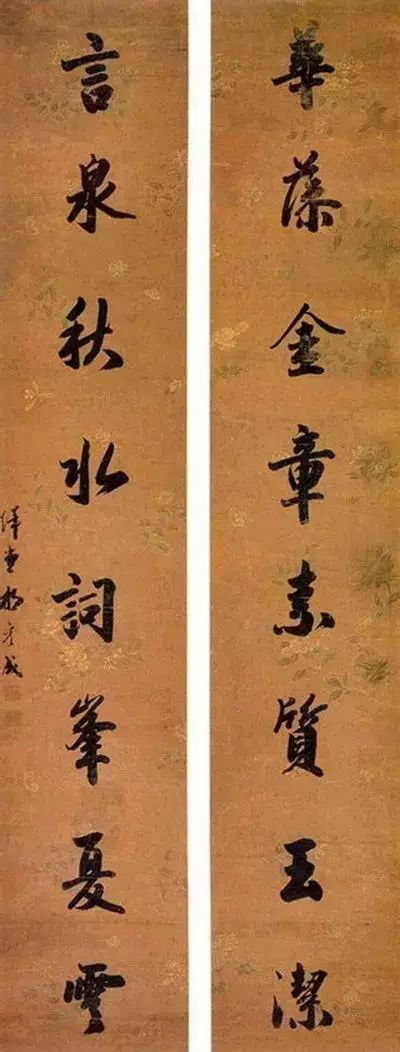 華藻金章素質玉潔
言泉秋水詞峯夏雲
繹堂那彥成